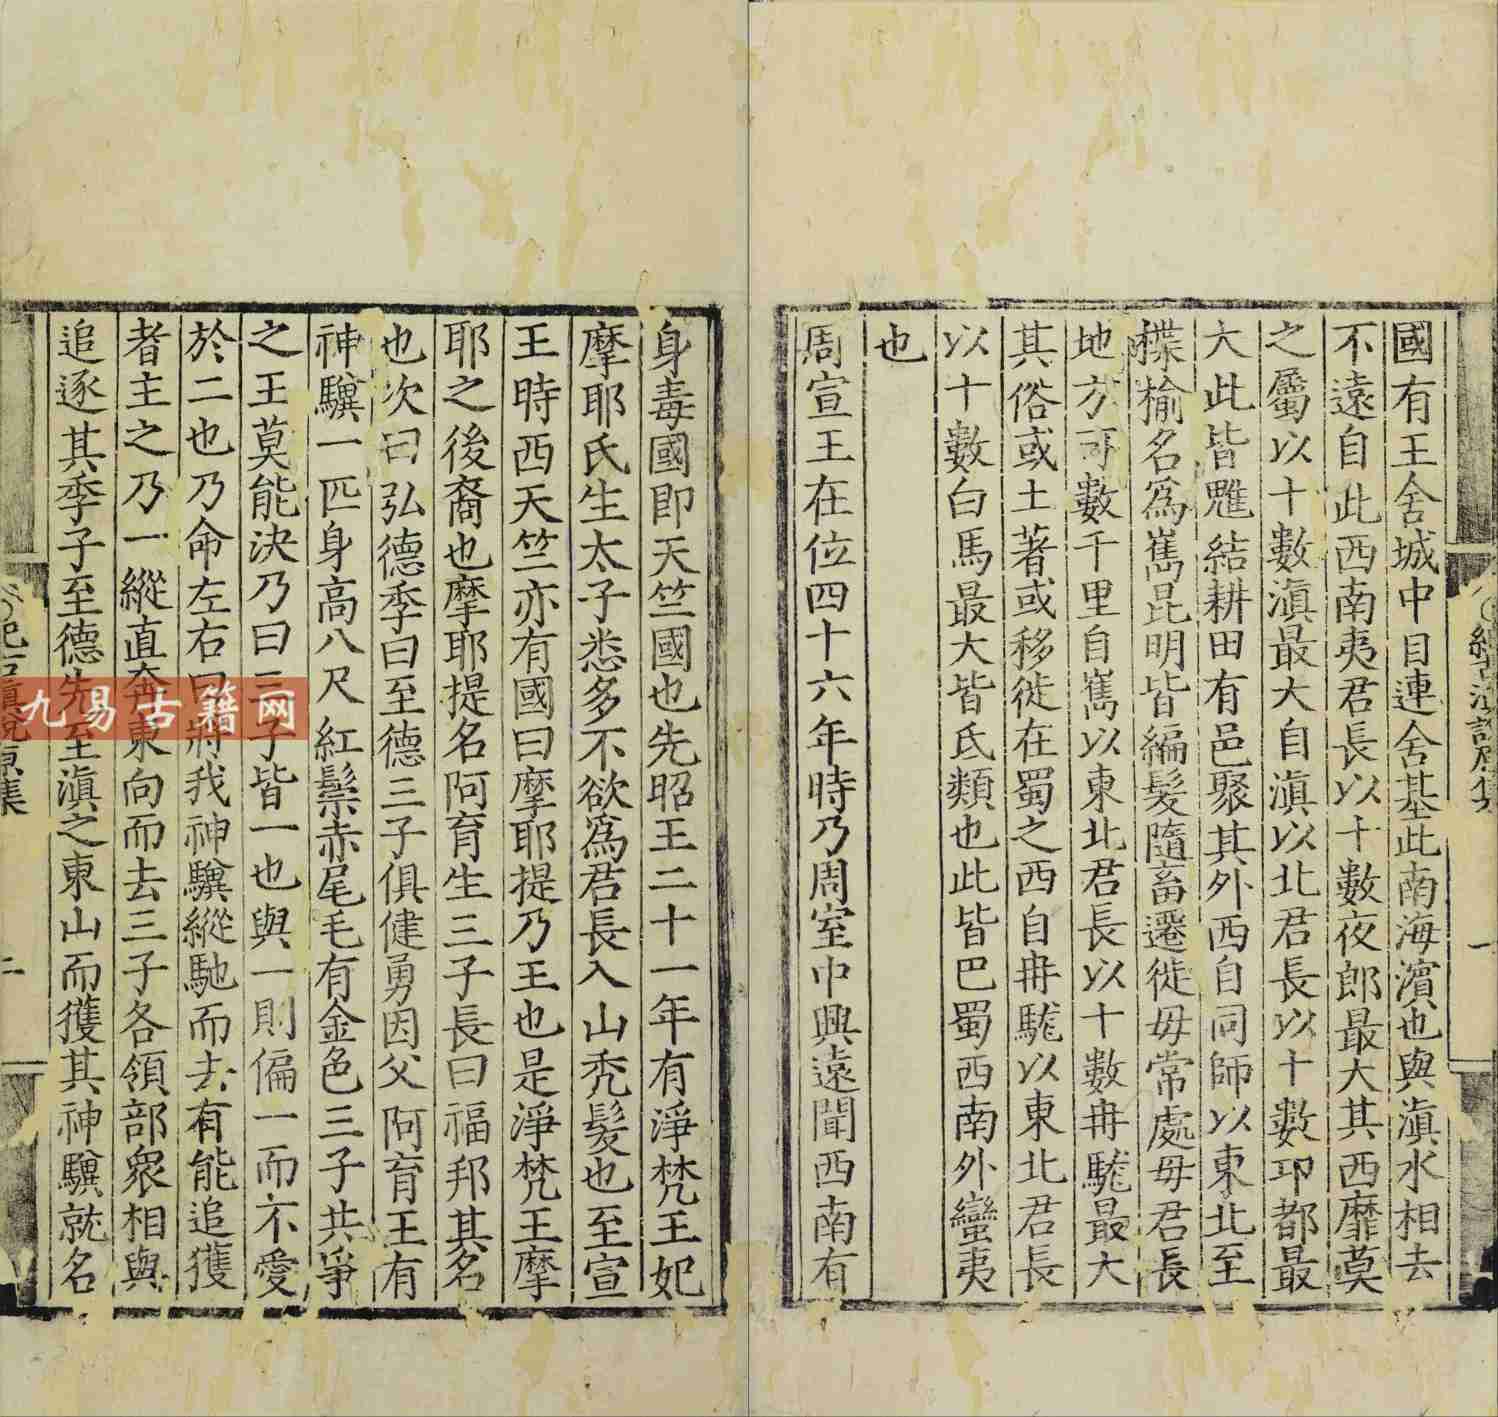 國有王舍城中目連舍基此南海濵也與滇水相去
不遠自此西南夷君長以十數夜郎最大其西靡莫
之屬以十數滇最大自滇以北君長以十數卭都最
大此皆魋結耕田有邑聚其外西自同師以東北至
楪榆名爲嶲昆明皆編髮隨畜遷徙毋常處毋君長
地方可數千里自嶲以東北君長以十數冉駹最大
其俗或土著或移徙在蜀之西自冉駹以東北君長
以十數白馬最大皆氐類也此皆巴蜀西南外蠻夷
也
周宣王在位四十六年時乃周室中興遠聞西南有
身毒國即天竺國也先昭王二十一年有淨梵王妃
摩耶氏生太子悉多不欲爲君長入山秃髮也至宣
王時西天竺亦有國曰摩耶提乃王也是淨梵王摩
耶之後裔也摩耶提名阿育生三子長曰福邦其名
也次曰弘德季曰至德三子俱健勇因父阿育王有
神驥一匹身高八尺紅鬃赤尾毛有金色三子共爭
之王莫能決乃曰三子皆一也與一則偏一而不愛
於二也乃命左右曰將我神驥縱馳而去有能追獲
者主之乃一縱直奔東向而去三子各領部衆相與
追逐其季子至德先至滇之東山而獲其神驥就名
九易古籍网